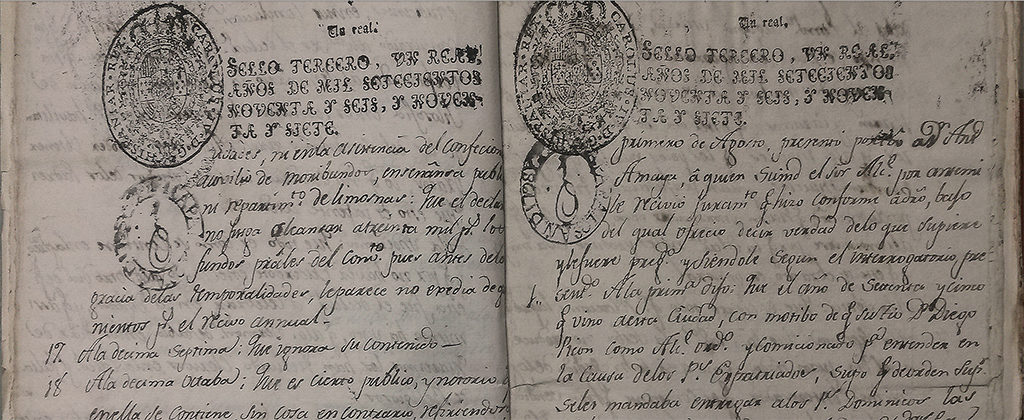 Un real.
SELLO TERCERO, UN REAL,
AÑOS DE MIL SETECIENTOS
NOVENTA Y SEIS, Y NOVEN-
TA Y SIETE.
ni en la asistencia del Confesion
auxilio de moribundos, enseñansa publi
ni repartim.to de limosnas: Que el decla
no jusga alcansar atreinta mil p.s los
fundos prâles del Com.to pues antes dela
gracia delas temporalidades, leparece no exedia de q
nientos p.s el recivo annual_
17. Ala decima septima: Que ignora su contenido_
18 Ala decima octaba: Que es cierto publico, y notorio q
enella se contiene sin cosa en contrario, refiriendos
Un real.
SELLO TERCERO, UN REAL,
AÑOS DE MIL SETECIENTOS
NOVENTA Y SEIS, Y NOVEN-
TA Y SIETE.
primero de Agosto, presento por tgo a D.n And.s
Amaya, â quien Su md el Sor Alc.e por ante mi
le recivio Juram.to q.e hizo conforme âdro, bajo
del qual ofrecio decir verdad delo que supiere
y lefuere preg.do y siendole segun el interrogatorio pre-
1. sent.do Ala prim.a dijo: Que el año de Sesenta y cinco
q.e vino aesta Ciudad, con motibo de q.e su Tio D.n Diego
Rion como Alc.e ord.o y Comicionado p.a entender en
la causa delos P.s Expatriados, supo q.e de orden sup.r
seles mandaba entregar alos P.s Dominicos las